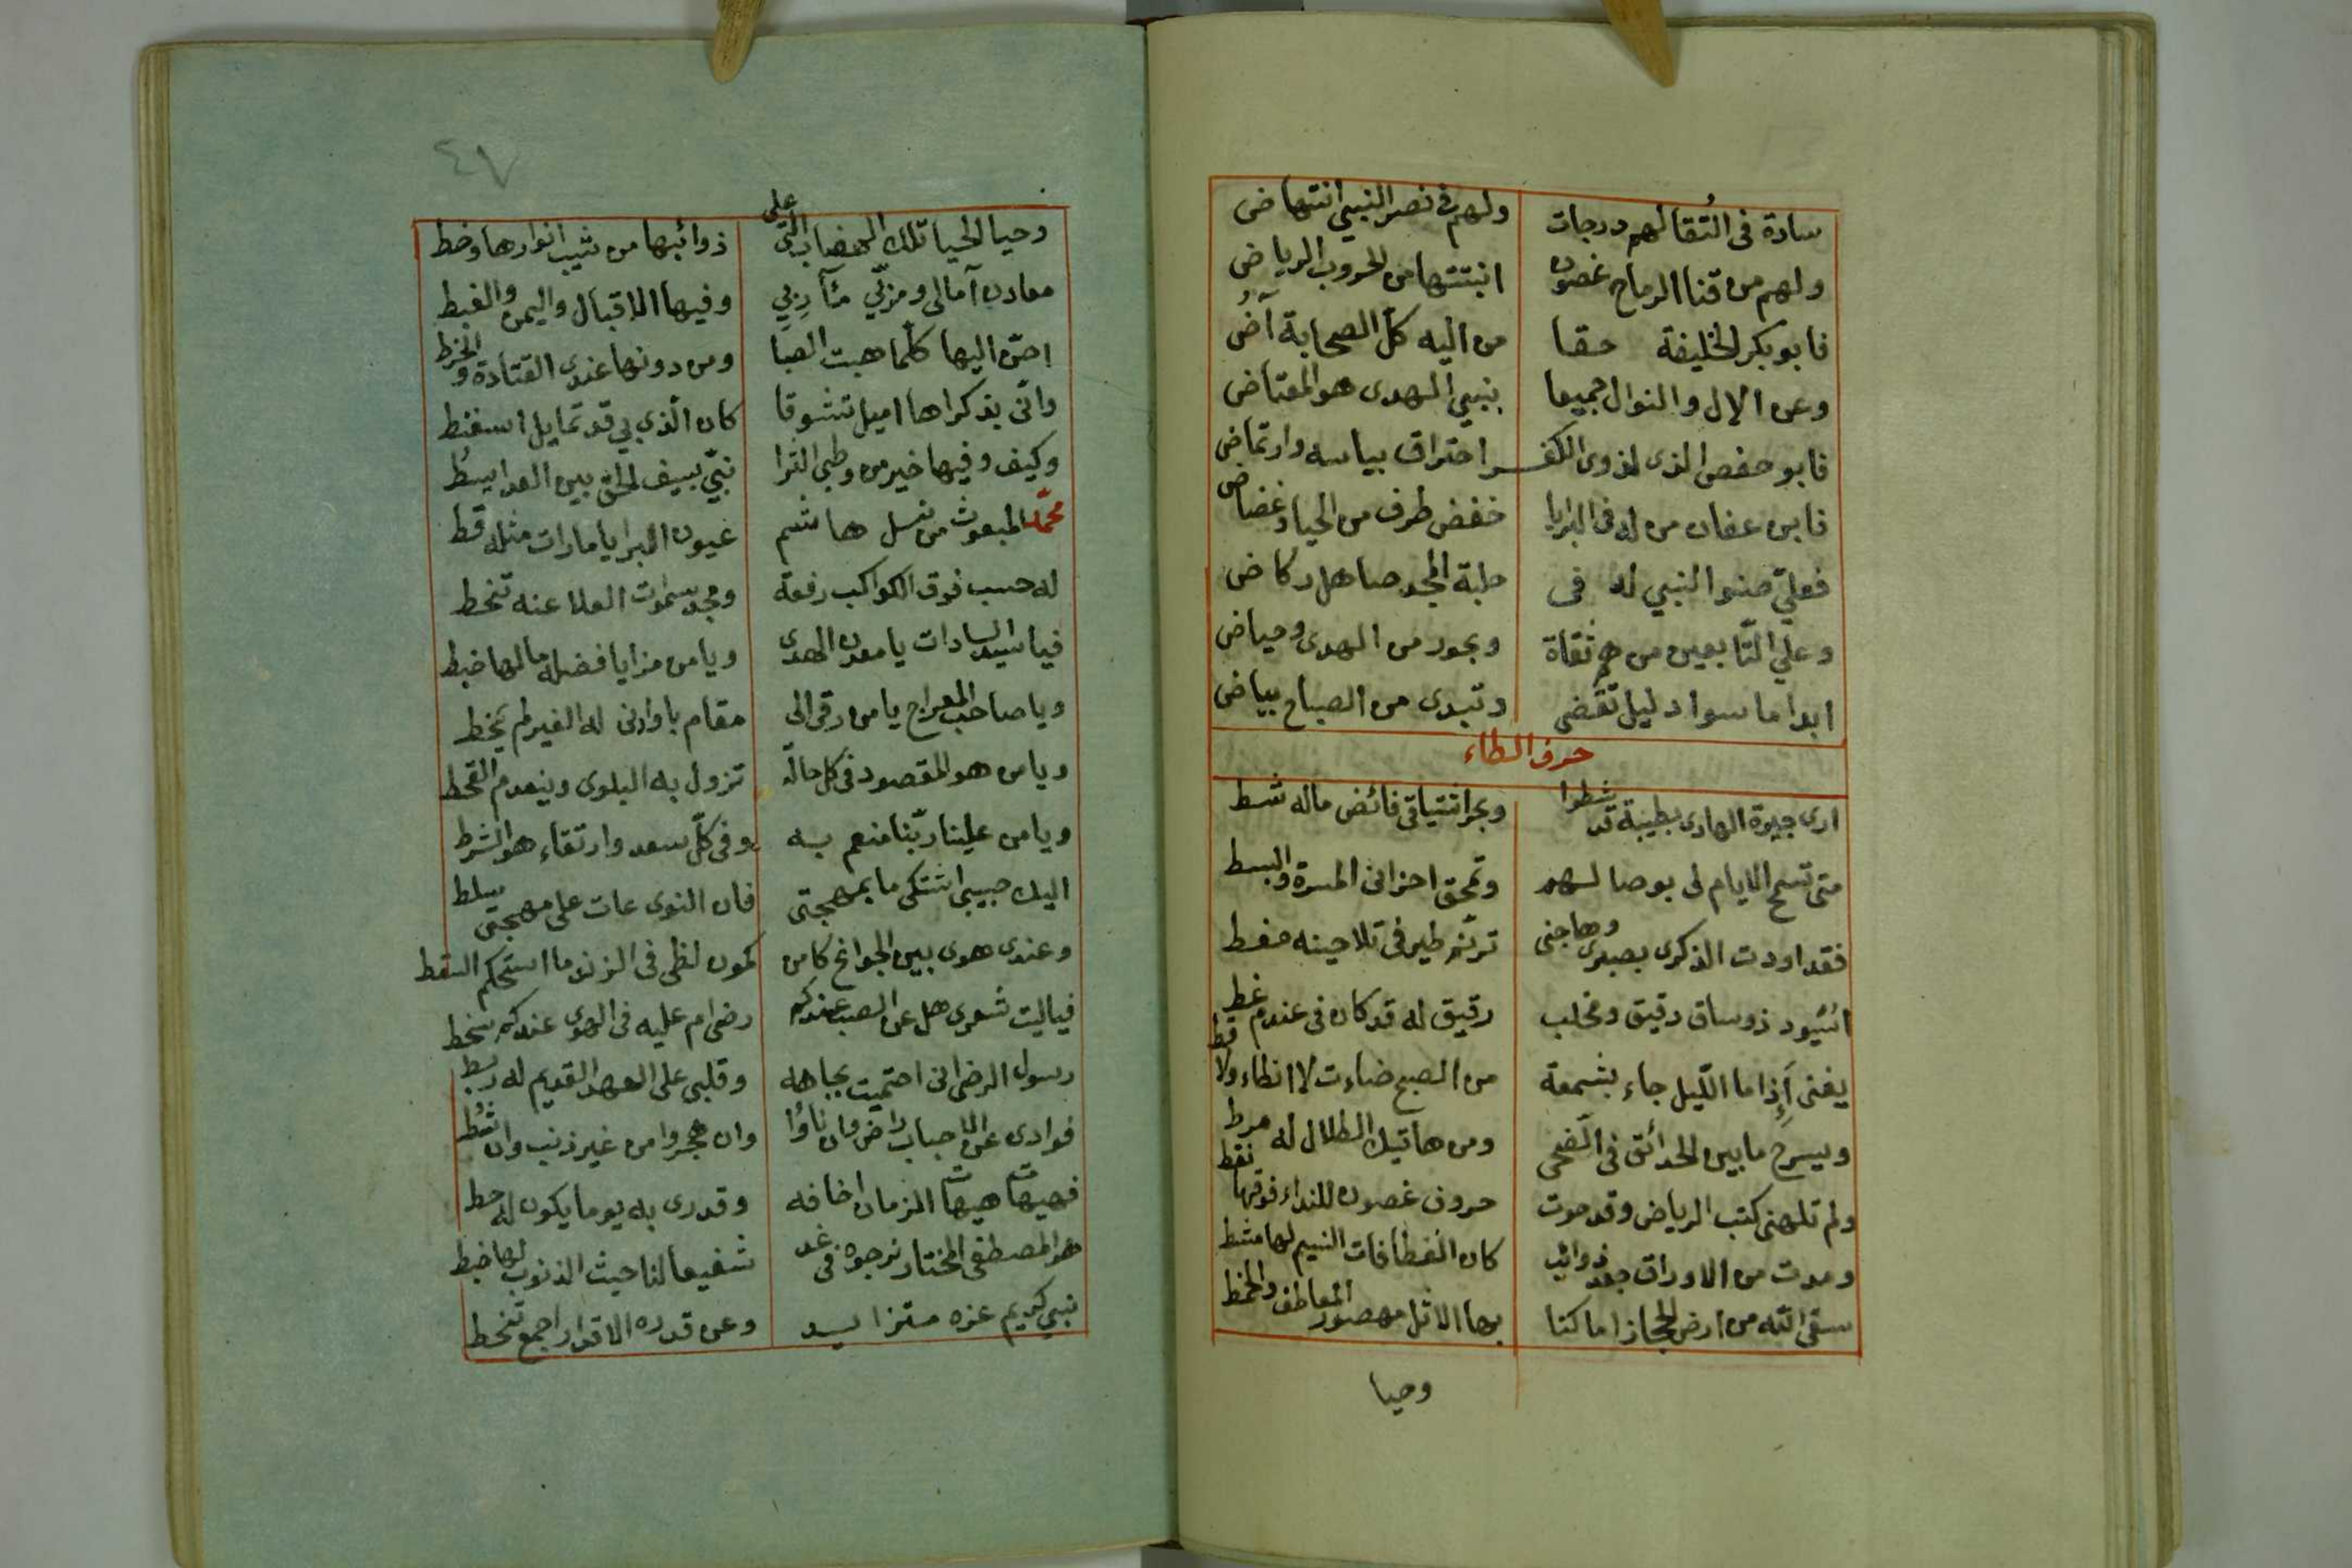 سادة فى التُقا لهم درجات ولهم فى نصر النبي انتهاض
ولهم من قنا الرماح غصون انبتتها من الحروب الرياض
فابو بكر الخليفة حقا من اليه كل الصحابة آضُ
وعن الال والنوال جميعا بنبي الهدى هو المعتاض
فابو حفص الذى لذوى الكفـر احتراق بباسه وارتماض
فابن عفان من له فى البرايا خفض طرف من الحيا وغضاض
فعليّ صنو النبي له فى حلبة المجد صاهل ركاض
وعلي التّابعين من هم ثقاة وبحور من الهدى وحياض
ابدا ما سواد ليل تقضى وتبدى من الصباح بياض
حرف الطاء
ارى جيرة الهادى بطيبة قد شطوا وبحر اشتياقى فائض ماله شط
متى تسمح الايام لى بوصالهم وتمحق احزانى المسرة والبسط
فقد اودت الذكرى بصبرى وهاجنى ترنّم طير فى تلاحينه ضغط
ذو ساق رقيق ومخلب رقيق له قد كان فى عندم غط
يغنى إذا ما اللّيل جاء بشمعة من الصبح ضاءت لا انطاء ولا قط
ويسرح ما بين الحدائق فى الضحى ومن هاتيك الظلال له مرط
ولم تلهنى كتب الرياض وقد حوت حروف غصون للنداء فوقها نقط
ومدت من الاوراق جعد ذوائب كان انعطافات النسيم لها مشط
سقى الله من ارض الحجاز اماكنا بها الاثل مهصور المعاطف والخمط
وحيا
٤٧
وحيا الحيا تلك الهضاب التى على ذوائبها من شيب انوارها وخط
معادن آمالى ومزكّي مآربي وفيها الاقبال واليمن والغبط
احنّ اليها كلما هبت الصبا ومن دونها عندى القتادة والخرط
وانّى بذكراها اميل تشوقا كان الّذي بي قد تمايل اسفنط
وكيف وفيها خير من وطي الثرا نبيّ بسيف الحق بين العدا يسطُ
محمّد المبعوث من نسل هاشم عيون البرايا ما رات مثله قط
له حسب فوق الكواكب رفعة ومجد سموات العلا عنه تنحط
فيا سيد السادات يا معدن الهدى ويا من مزايا فضله مالها ضبط
ويا صاحب المعراج يا من رقى الى مقام باو ادنى له الغير لم يخط
ويا من هو المقصود فى كل حالة تزول به البلوى وينعدم القحط
ويا من علينا ربّنا منعم به وفى كلّ سعد وارتقاء هو الشرط
اليك حبيبى اشتكى ما بمهجتى فان النوى عات على مهجتى سلط
وعندى هوى بين الجوانح كامن كمون لظى فى الزند ما استحكم السقط
فياليت شعرى هل عن الصب عندكم رضى ام عليه فى الهوى عندكم سخط
رسول الرضى انى احتميت بجاهه وقلبى على العهد القديم له ربط
فوادى عن الاحباب راض وان ناؤا وان هجروا من غير ذنب وان شطُ
فهيهات هيهات الزمان اخافه وقدرى به يوما يكون له حط
هو المصطفى المختار نرجوه فى غد شفيعا لنا حيث الذنوب لها ضبط
نبي كريم عزه متزايد وعن قدره الاقدار اجمع تنحط